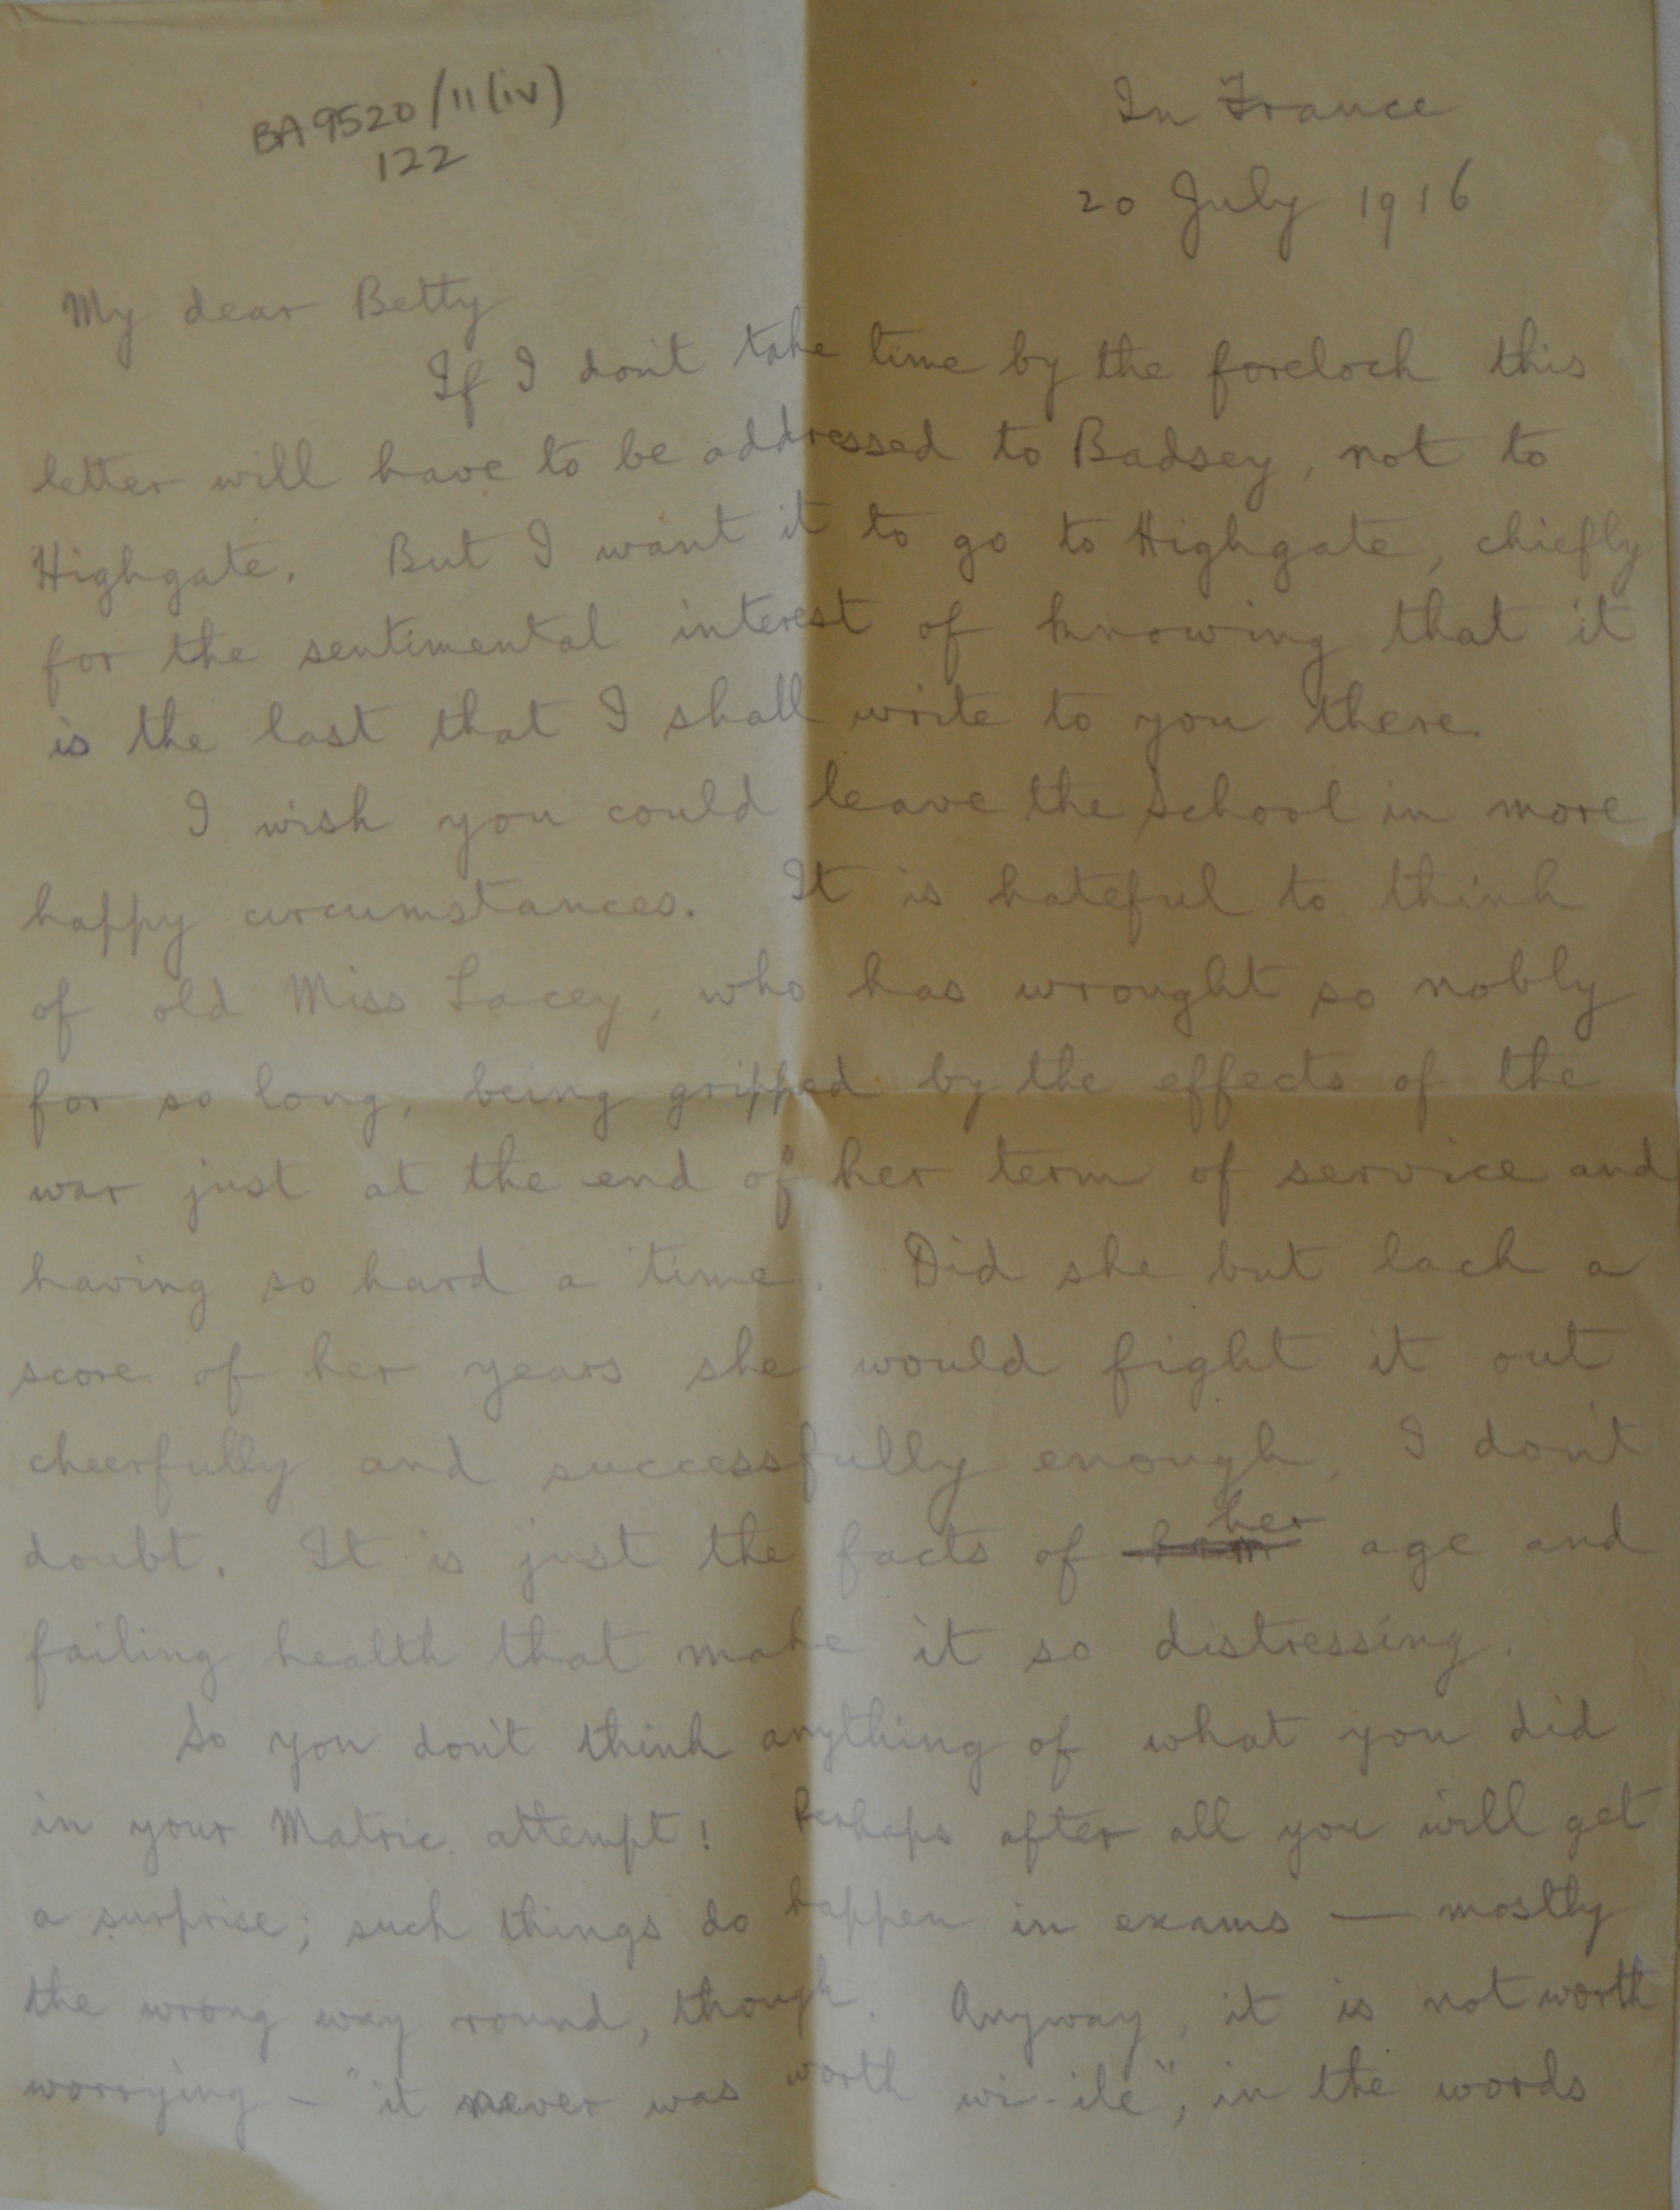 BA9520/11(iv)
122
In France
20 July 1916
My dear Betty
If I don't take time by the forelock this
letter will have to be addressed to Badsey, not to
Highgate. But I want it to go to Highgate, chiefly
for the sentimental interest of knowing that it
is the last that I shall write to you there.
I wish you could leave the School in more
happy circumstances. It is hateful to think
of old Miss Lacey, who has wrought so nobly
for so long, being gripped by the effects of the
war just at the end of her term of service and
having so hard a time. Did she but lack a
score of her years she would fight it out
cheerfully and successfully enough, I don't
doubt. It is just the facts of her age and
failing health that make it so distressing.
So you don't think anything of what you did
in your Matric. attempt! Perhaps after all you will get
a surprise; such things do happen in exams — mostly
the wrong way round, though. Anyway, it is not worth
worrying – "it never was worth wi-ile", in the words